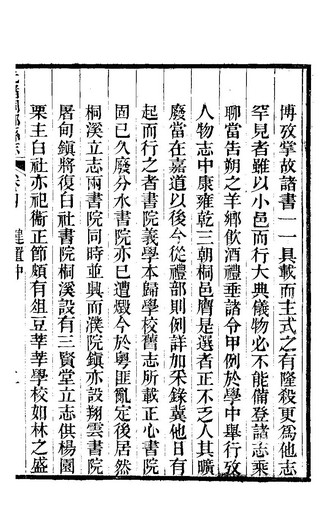 博攷掌故諸書一一具載而主式之有隆殺更為他志
罕見者雖以小邑而行大典儀物必不能備登諸志乘
聊當告朔之羊鄉飲酒禮垂諸令甲例於學中舉行攷
人物志中康雍乾三朝桐邑膺是選者正不乏人其曠
廢當在嘉道以後今從禮部則例詳加采錄冀他日有
起而行之者書院義學本歸學校舊志所載正心書院
固已久廢分水書院亦已遭燬今於粤匪亂定後居然
桐溪立志兩書院同時並興而濮院鎮亦設翔雲書院
屠甸鎮將復白社書院桐溪設有三賢堂立志供楊園
栗主白社亦祀衛正節頗有俎豆莘莘學校如林之盛
建置中